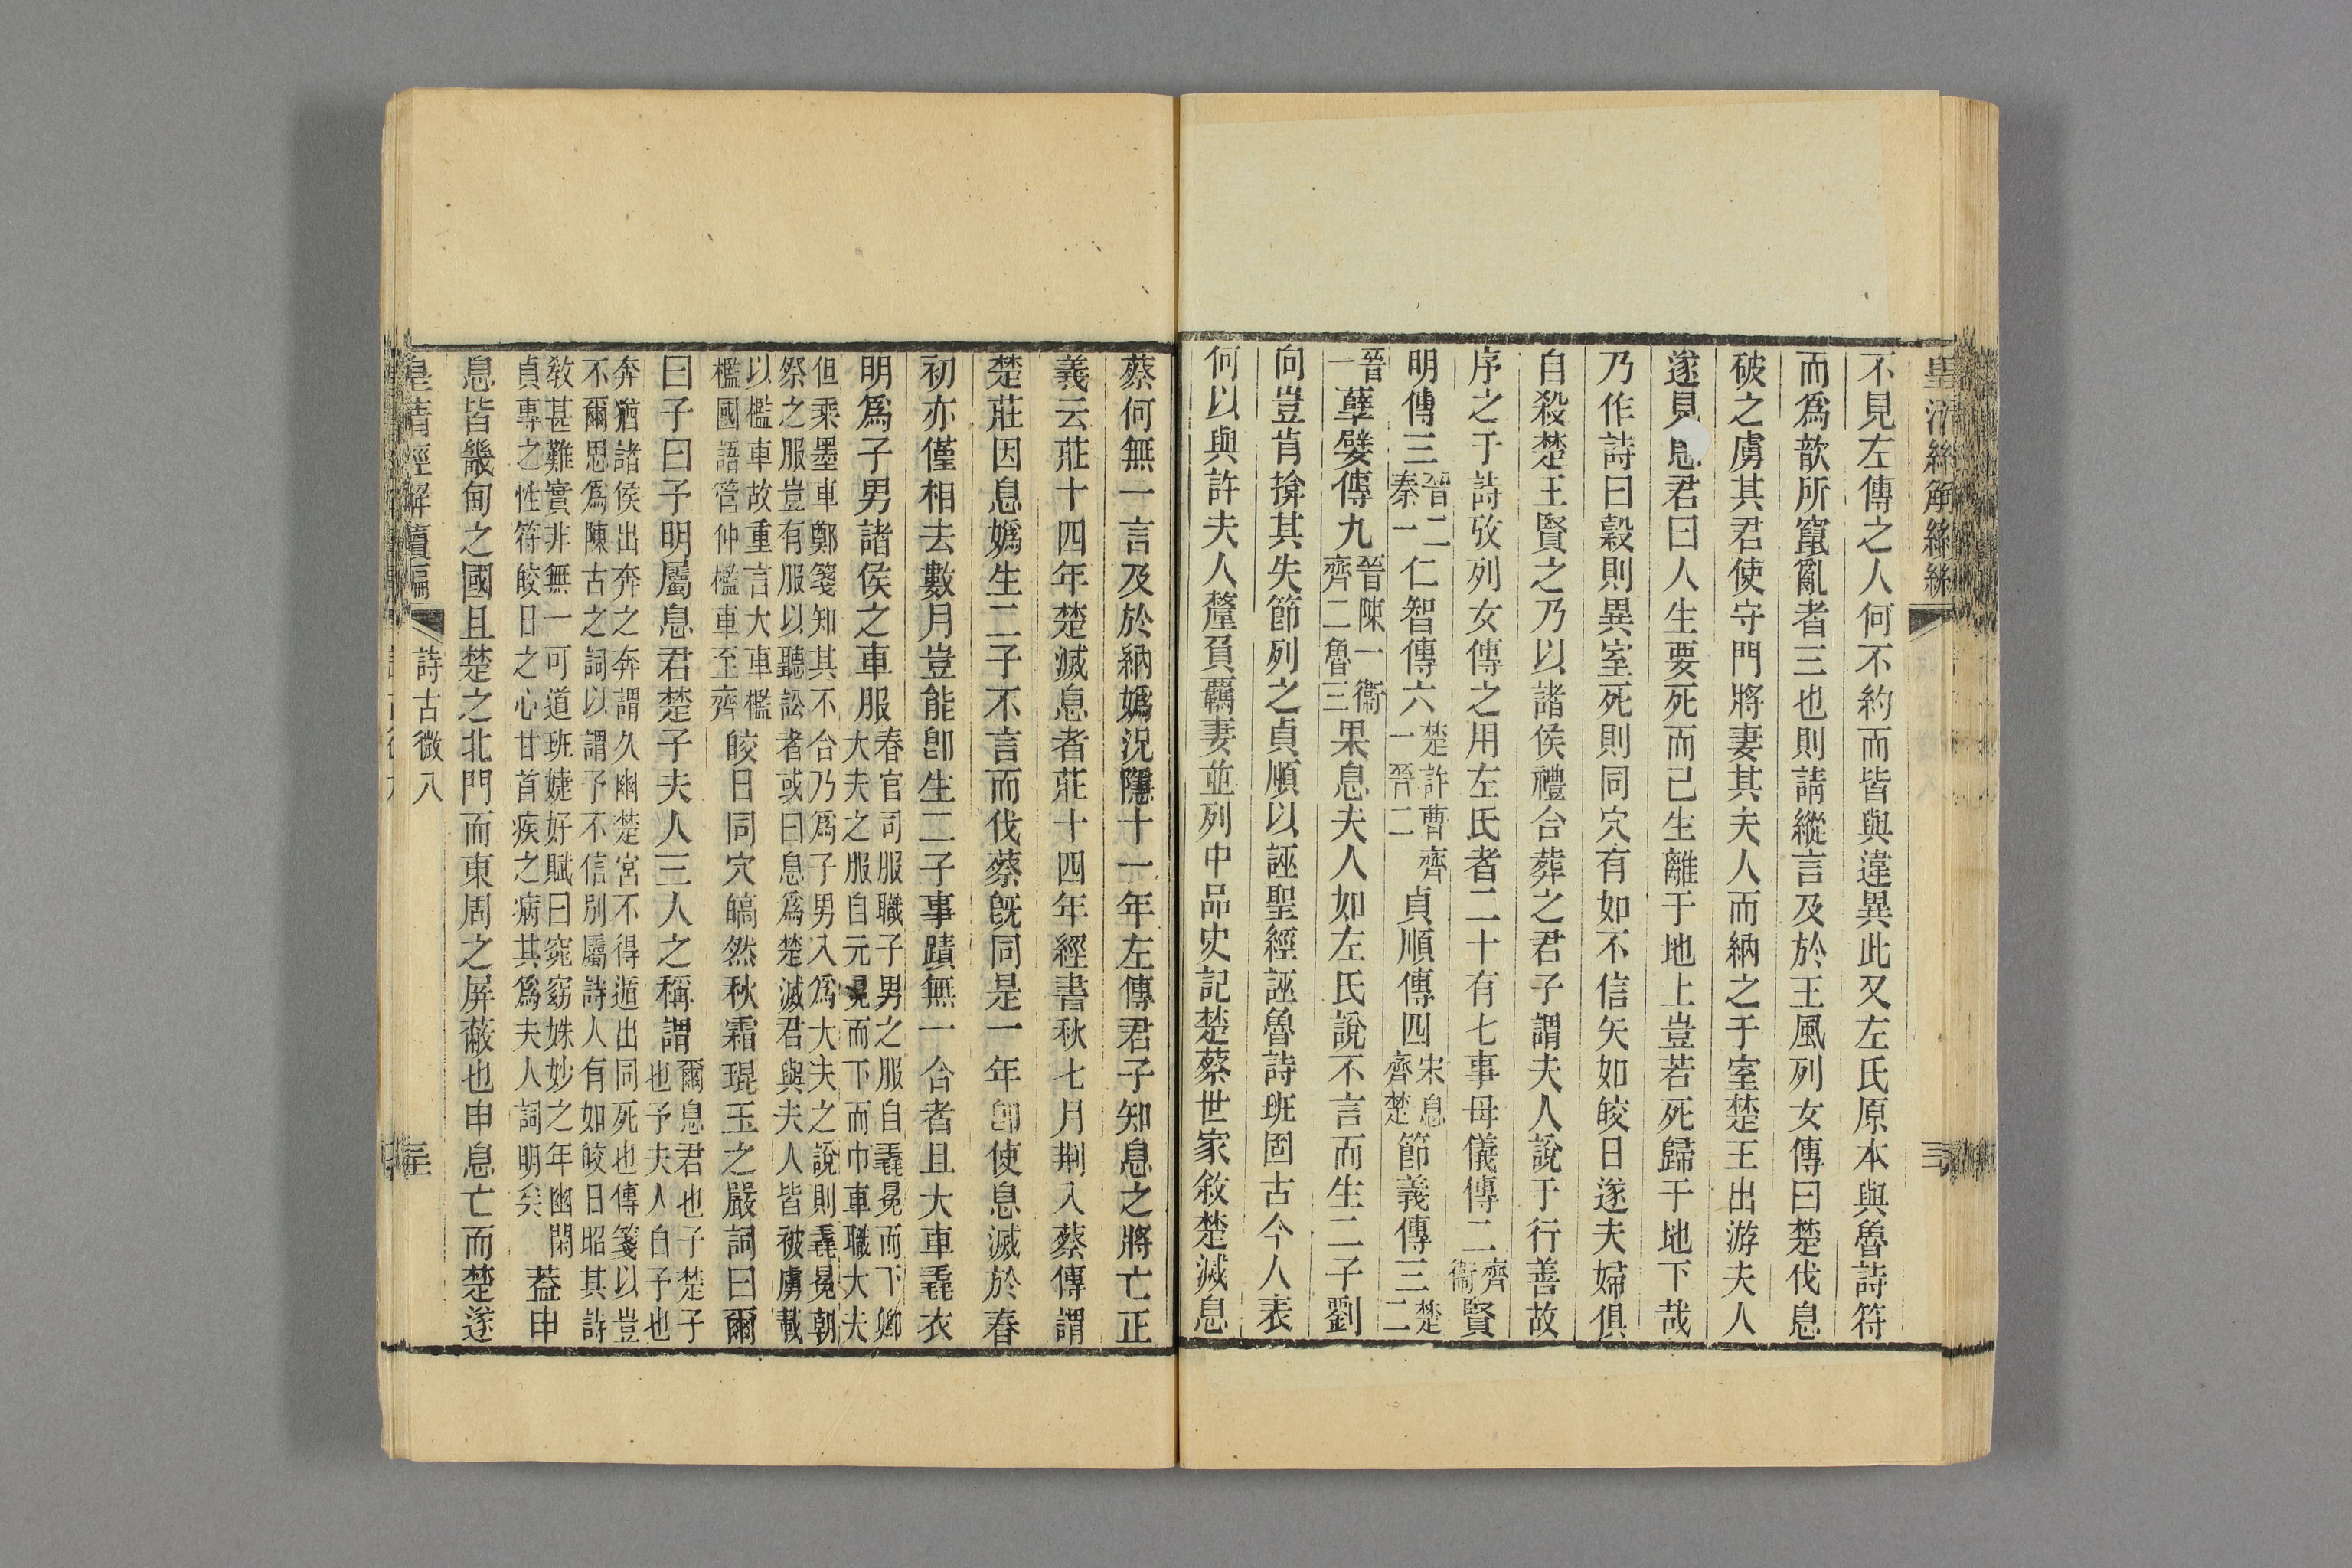 不見左傳之人何不約而皆與違異此又左氏原本與魯詩符
而爲歆所竄亂者三也則請縱言及於王風列女傳曰楚伐息
破之虜其君使守門將妻其夫人而納之于室楚王出游夫人
遂見息君曰人生要死而已生離于地上豈若死歸于地下哉
乃作詩曰穀則異室死則同穴有如不信矢如皎日遂夫婦俱
自殺楚王賢之乃以諸侯禮合葬之君子謂夫人說于行善故
序之于詩攷列女傳之用左氏者二十有七事母儀傳二齊衞賢
明傳三晉二秦一仁智傳六楚許曹齊一晉二貞順傳四宋息齊楚節義傳三楚二
晉一孽嬖傳九晉陳一衞齊二魯三果息夫人如左氏說不言而生二子劉
向豈肯揜其失節列之貞順以誣聖經誣魯詩班固古今人表
何以與許夫人釐負羈妻並列中品史記楚蔡世家敘楚滅息
蔡何無一言及於納嬀況隱十一年左傳君子知息之將亡正
義云莊十四年楚滅息者莊十四年經書秋七月荆入蔡傳謂
楚莊因息嬀生二子不言而伐蔡旣同是一年卽使息滅於春
初亦僅相去數月豈能卽生二子事蹟無一合者且大車毳衣
明爲子男諸侯之車服春官司服職子男之服自毳冕而下卿
大夫之服自元冕而下而巾車職大夫
但乘墨車鄭箋知其不合乃爲子男入爲大夫之說則毳冕朝
祭之服豈有服以聽訟者或曰息爲楚滅君與夫人皆被虜載
以檻車故重言大車檻
檻國語管仲檻車至齊皎日同穴皜然秋霜琨玉之嚴詞曰爾
曰子曰予明屬息君楚子夫人三人之稱謂爾息君也子楚子
也予夫人自予也
奔猶諸侯出奔之奔謂久幽楚宮不得遁出同死也傳箋以豈
不爾思爲陳古之詞以謂予不信別屬詩人有如皎日昭其詩
敎甚難實非無一可道班婕好賦曰窕窈姝妙之年幽閑
貞專之性符皎日之心甘首疾之病其爲夫人詞明矣蓋申
息皆畿甸之國且楚之北門而東周之屏蔽也申息亡而楚遂
皇淸經解續編
詩古微八